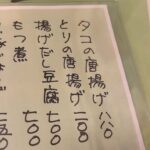 タコの唐揚げ 八八〇
とりの唐揚げ 二八〇
揚げだし豆腐 七〇〇
もつ煮 七〇〇